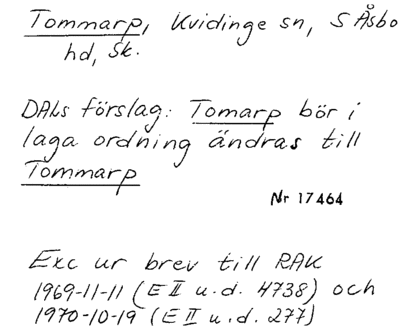 Tommarp, Kvidinge sn, S Åsbo
hd, Sk.
DALs förslag: Tomarp bör i
laga ordning ändras till
Tommarp
Nr 17464
Exc ur brev till RAK
1969-11-11 (E II u.d. 4738) och
1970-10-19 (E II u.d. 277)